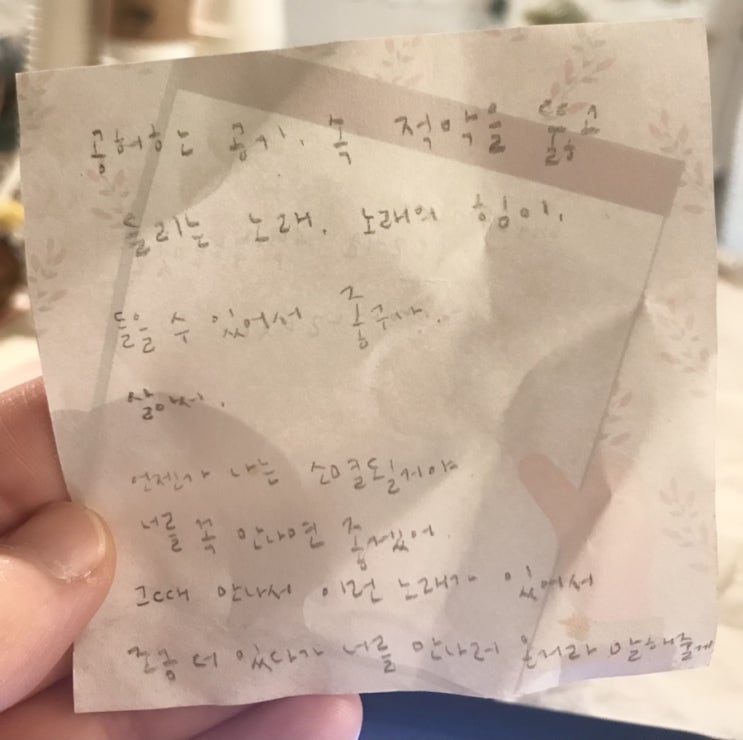 공허하는 공기. 푹 적막을 뚫고
들리는 노래. 노래의 힘이.
들을 수 있어서 좋구나.
살아서.
언젠가 나는 소멸될거야
너를 꼭 만나면 좋겠어.
그때 만나서 이런 노래가 있어서
조금 더 있다가 너를 만나러 온거라 말해줄게